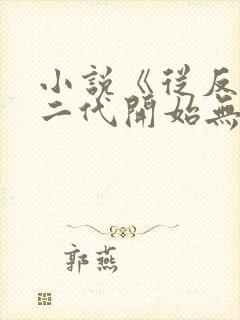 小説《從反
二代開始無
郭燕